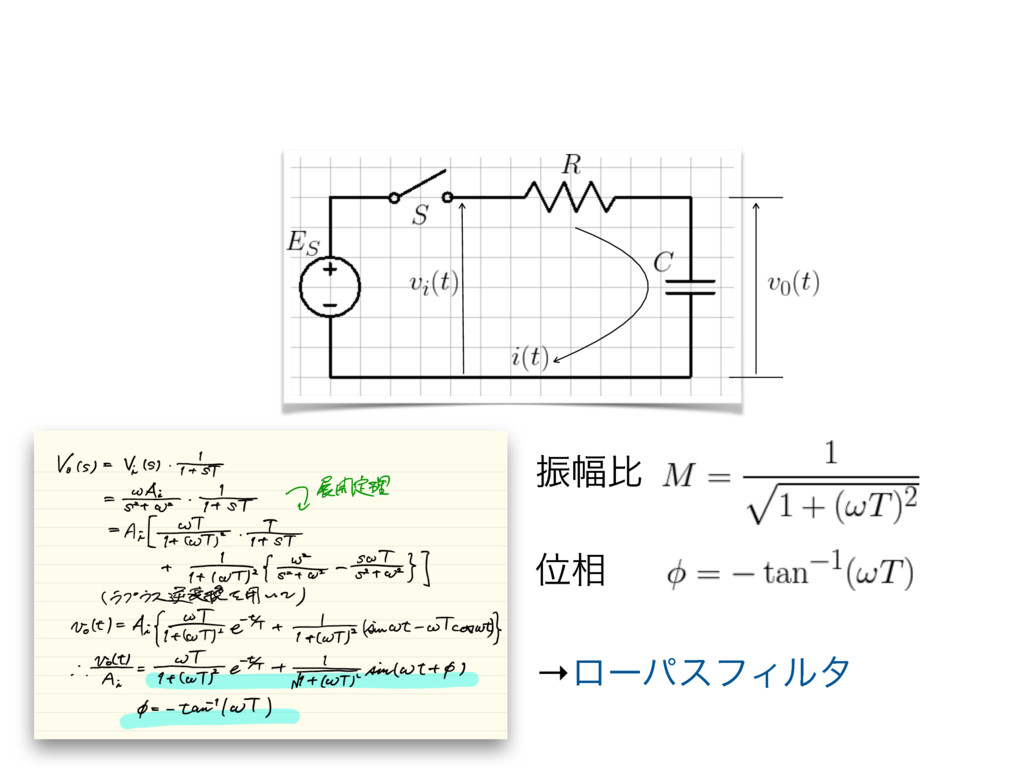 R
S
E_S
+
−
v_i(t)
C
v_0(t)
i(t)
V₀(s) = V_i(s) · 1/(1+sT)
= ωA_i/(s²+ω²) · 1/(1+sT)
展開定理
= A_i[ ωT/(1+(ωT)²) · T/(1+sT)
+ 1/(1+(ωT)²) { ω²/(s²+ω²) − sωT/(s²+ω²) } ]
(ラプラス逆変換を用いて)
v₀(t) = A_i{ ωT/(1+(ωT)²) e^(−t/T) + 1/(1+(ωT)²) (sin ωt − ωT cos ωt) }
∴ v₀(t)/A_i = ωT/(1+(ωT)²) e^(−t/T) + 1/√(1+(ωT)²) sin(ωt+φ)
φ = −tan⁻¹(ωT)
振幅比 M = 1/√(1+(ωT)²)
位相 φ = −tan⁻¹(ωT)
→ローパスフィルタ